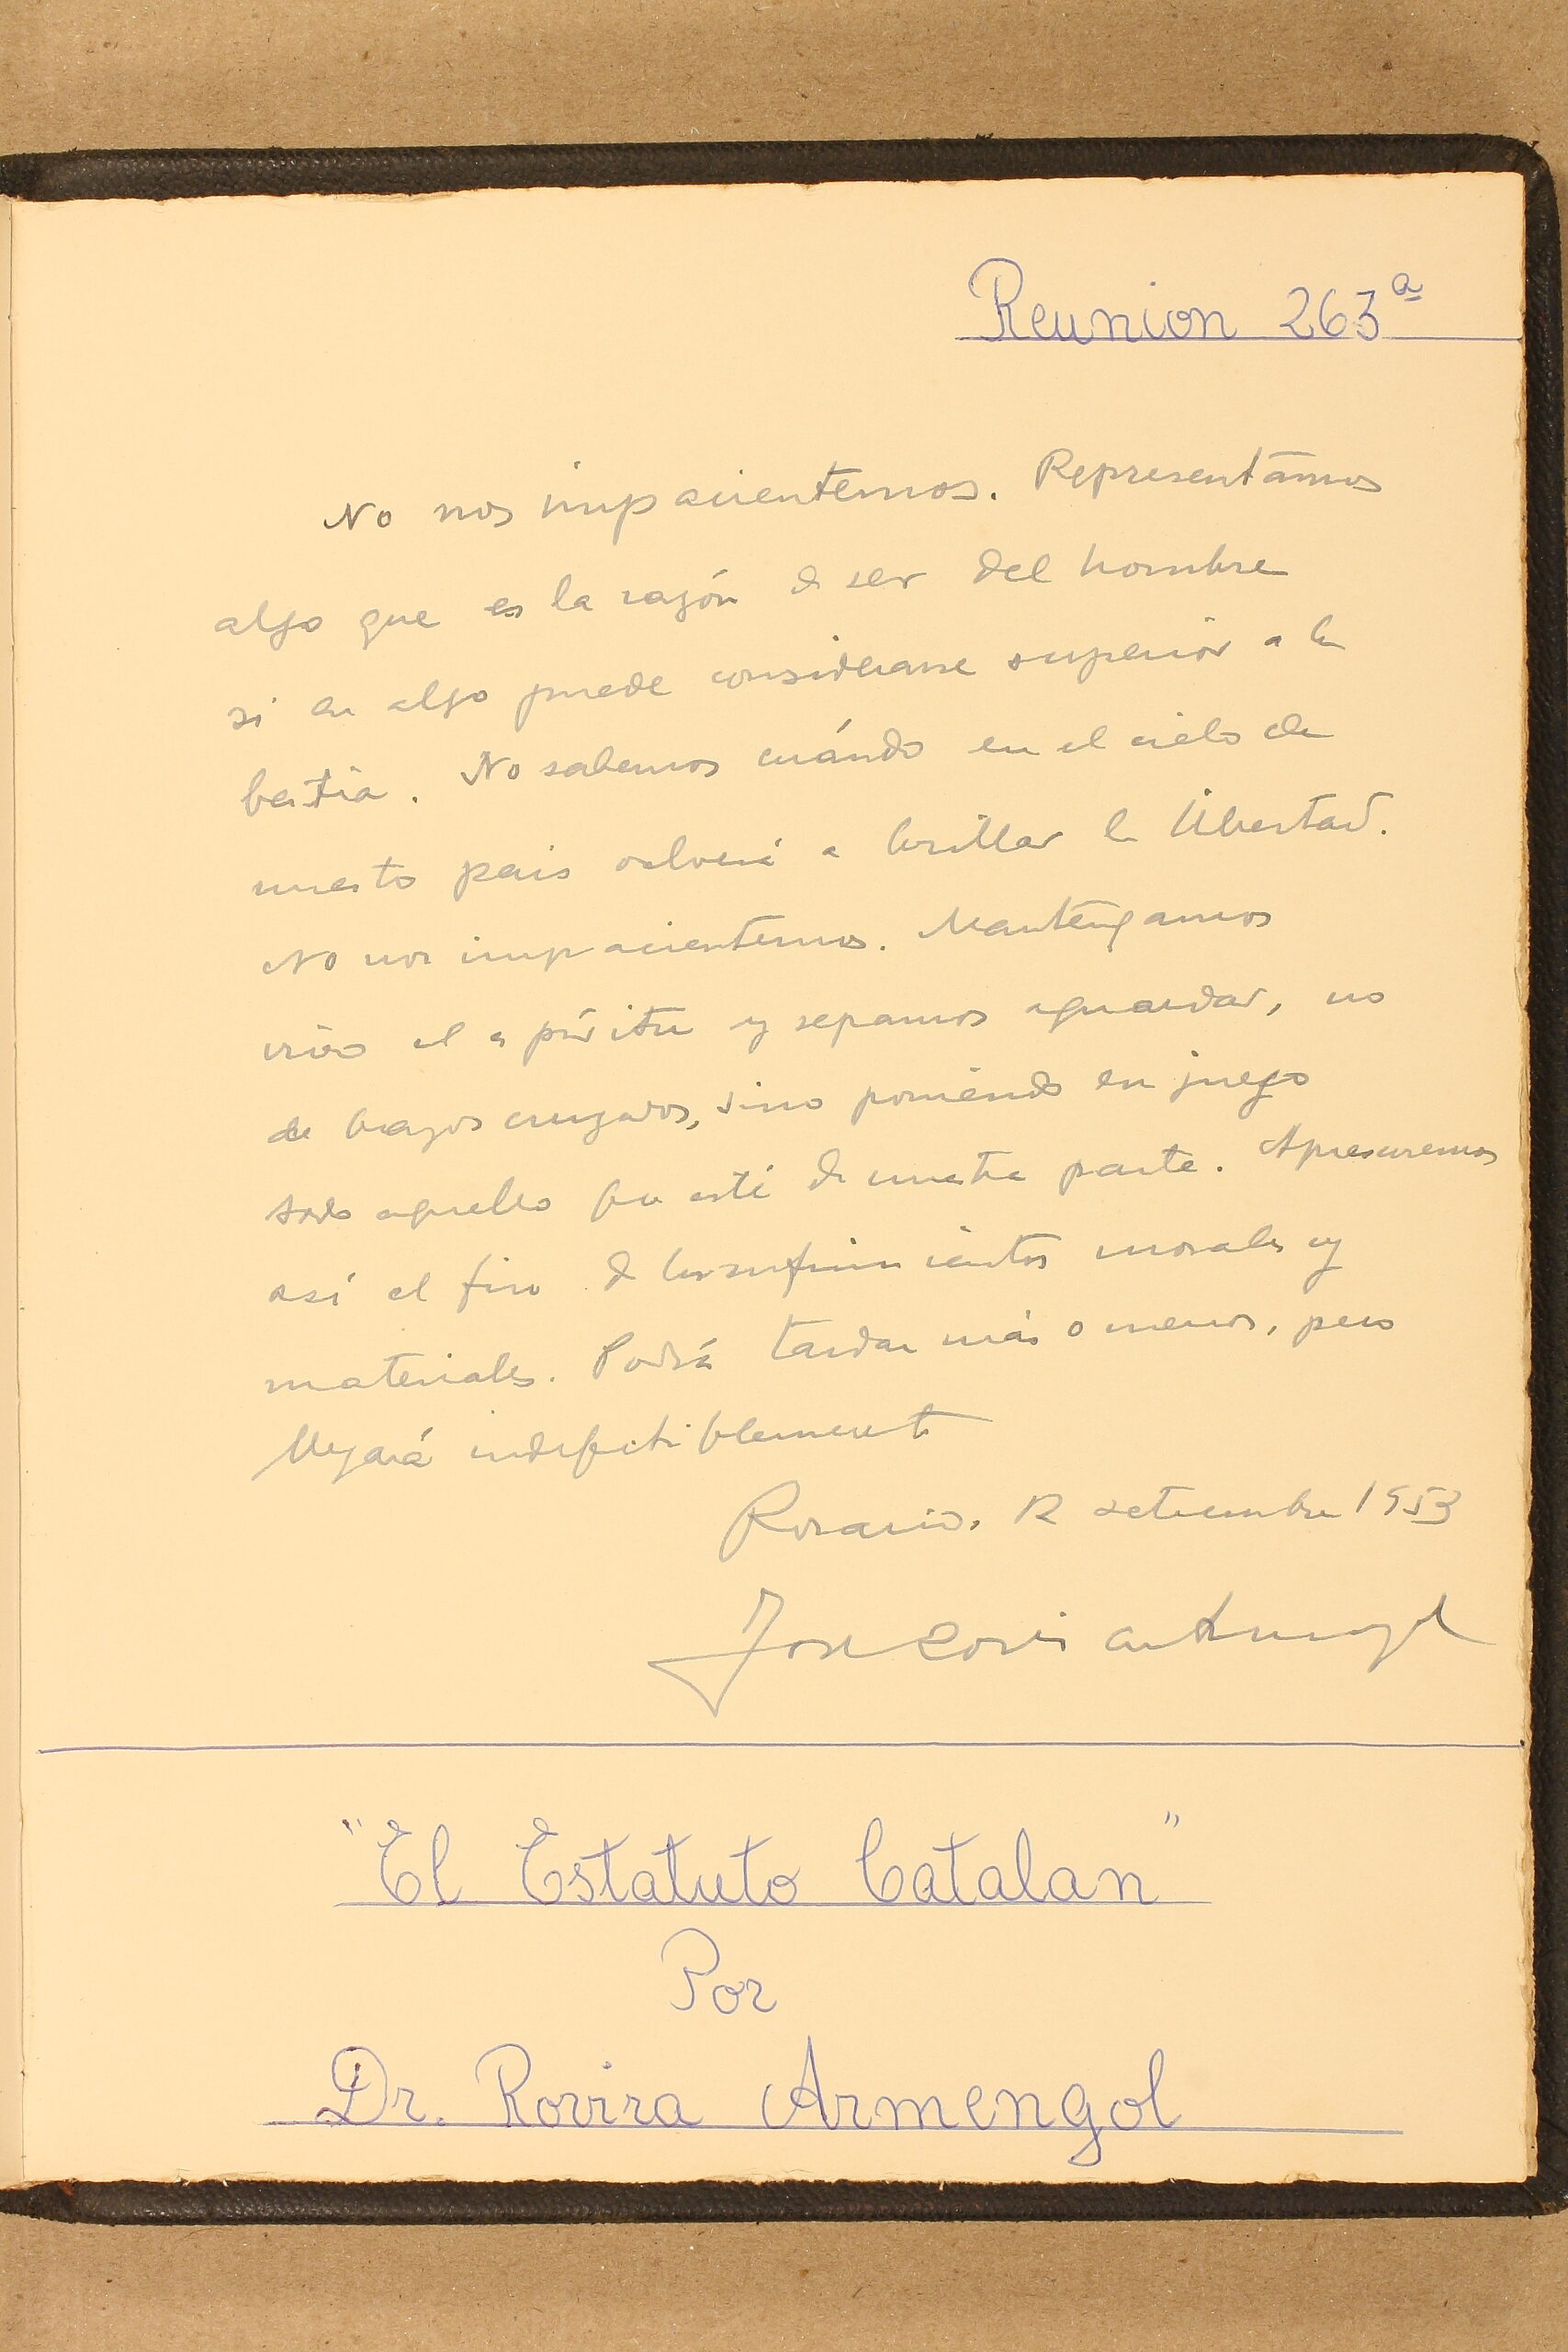 Reunion 263ª
No nos impacientemos. Representamos
algo que es la razón de ser del hombre
si en algo puede considerarse superior a la
bestia. No sabemos cuándo en el cielo de
nuestro pais volverá a brillar la libertad.
No nos impacientemos. Mantengamos
vivo el espíritu y sepamos aguardar, no
de brazos cruzados, sino poniendo en juego
todo aquello que esté de nuestra parte. Apresuremos
así el fin de los sufrimientos morales y
materiales. Podrá tardar más o menos, pero
llegará indefectiblemente
Rosario, 12 setiembre 1953
José Rovira Armengol
"El Estatuto Catalan"
Por
Dr. Rovira Armengol